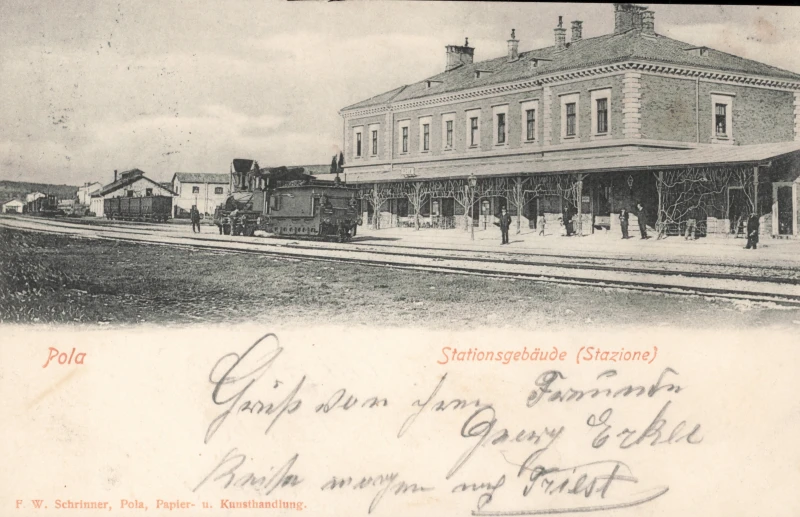 Pola
Stationsgebäude (Stazione)
Gruß von Ihrem Freunde
Georg Erkel
Reise morgen nach Triest
F. W. Schrinner, Pola, Papier- u. Kunsthandlung.